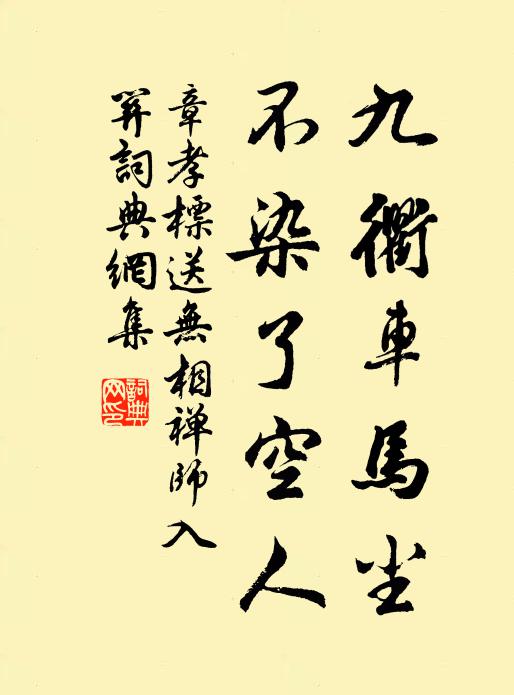 九衢車馬尘
不染了空人
章孝標送無相禅師入
關詞典網集
詞典网印